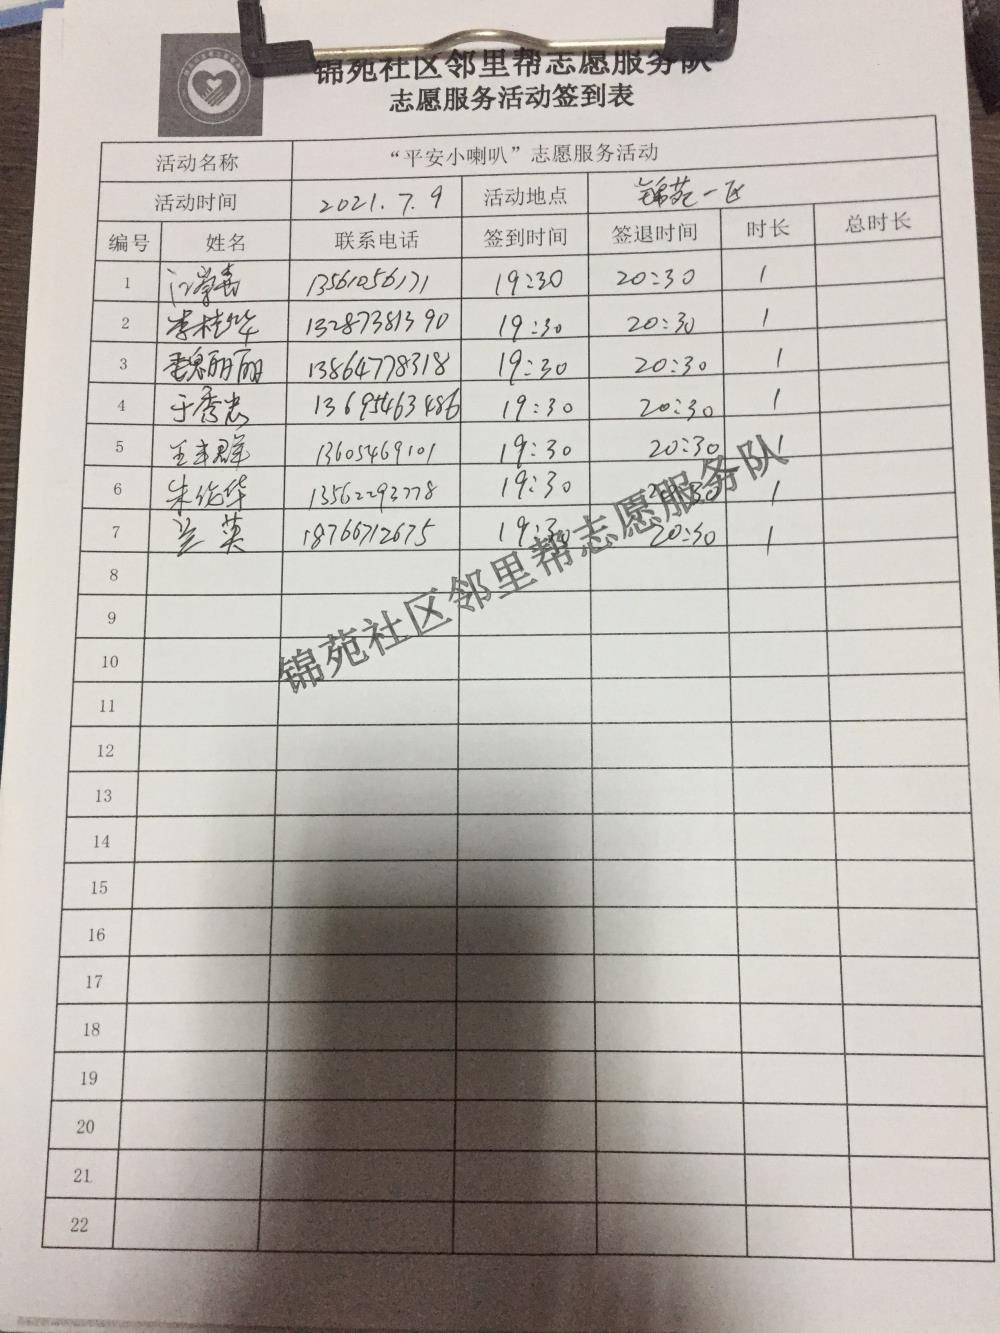 锦苑社区邻里帮志愿服务队
志愿服务活动签到表
活动名称 “平安小喇叭”志愿服务活动
活动时间 2021.7.9 活动地点 锦苑一区
编号 姓名 联系电话 签到时间 签退时间 时长 总时长
1 13561056171 19:30 20:30 1
2 李桂华 13287381390 19:30 20:30 1
3 魏丽丽 13864778318 19:30 20:30 1
4 于秀忠 13695463486 19:30 20:30 1
5 王丰群 13605469101 19:30 20:30 1
6 朱伦华 13562293778 19:30 20:30 1
7 兰英 18766712675 19:30 20:30 1
8
9
10
11
12
13
14
15
16
17
18
19
20
21
22
锦苑社区邻里帮志愿服务队